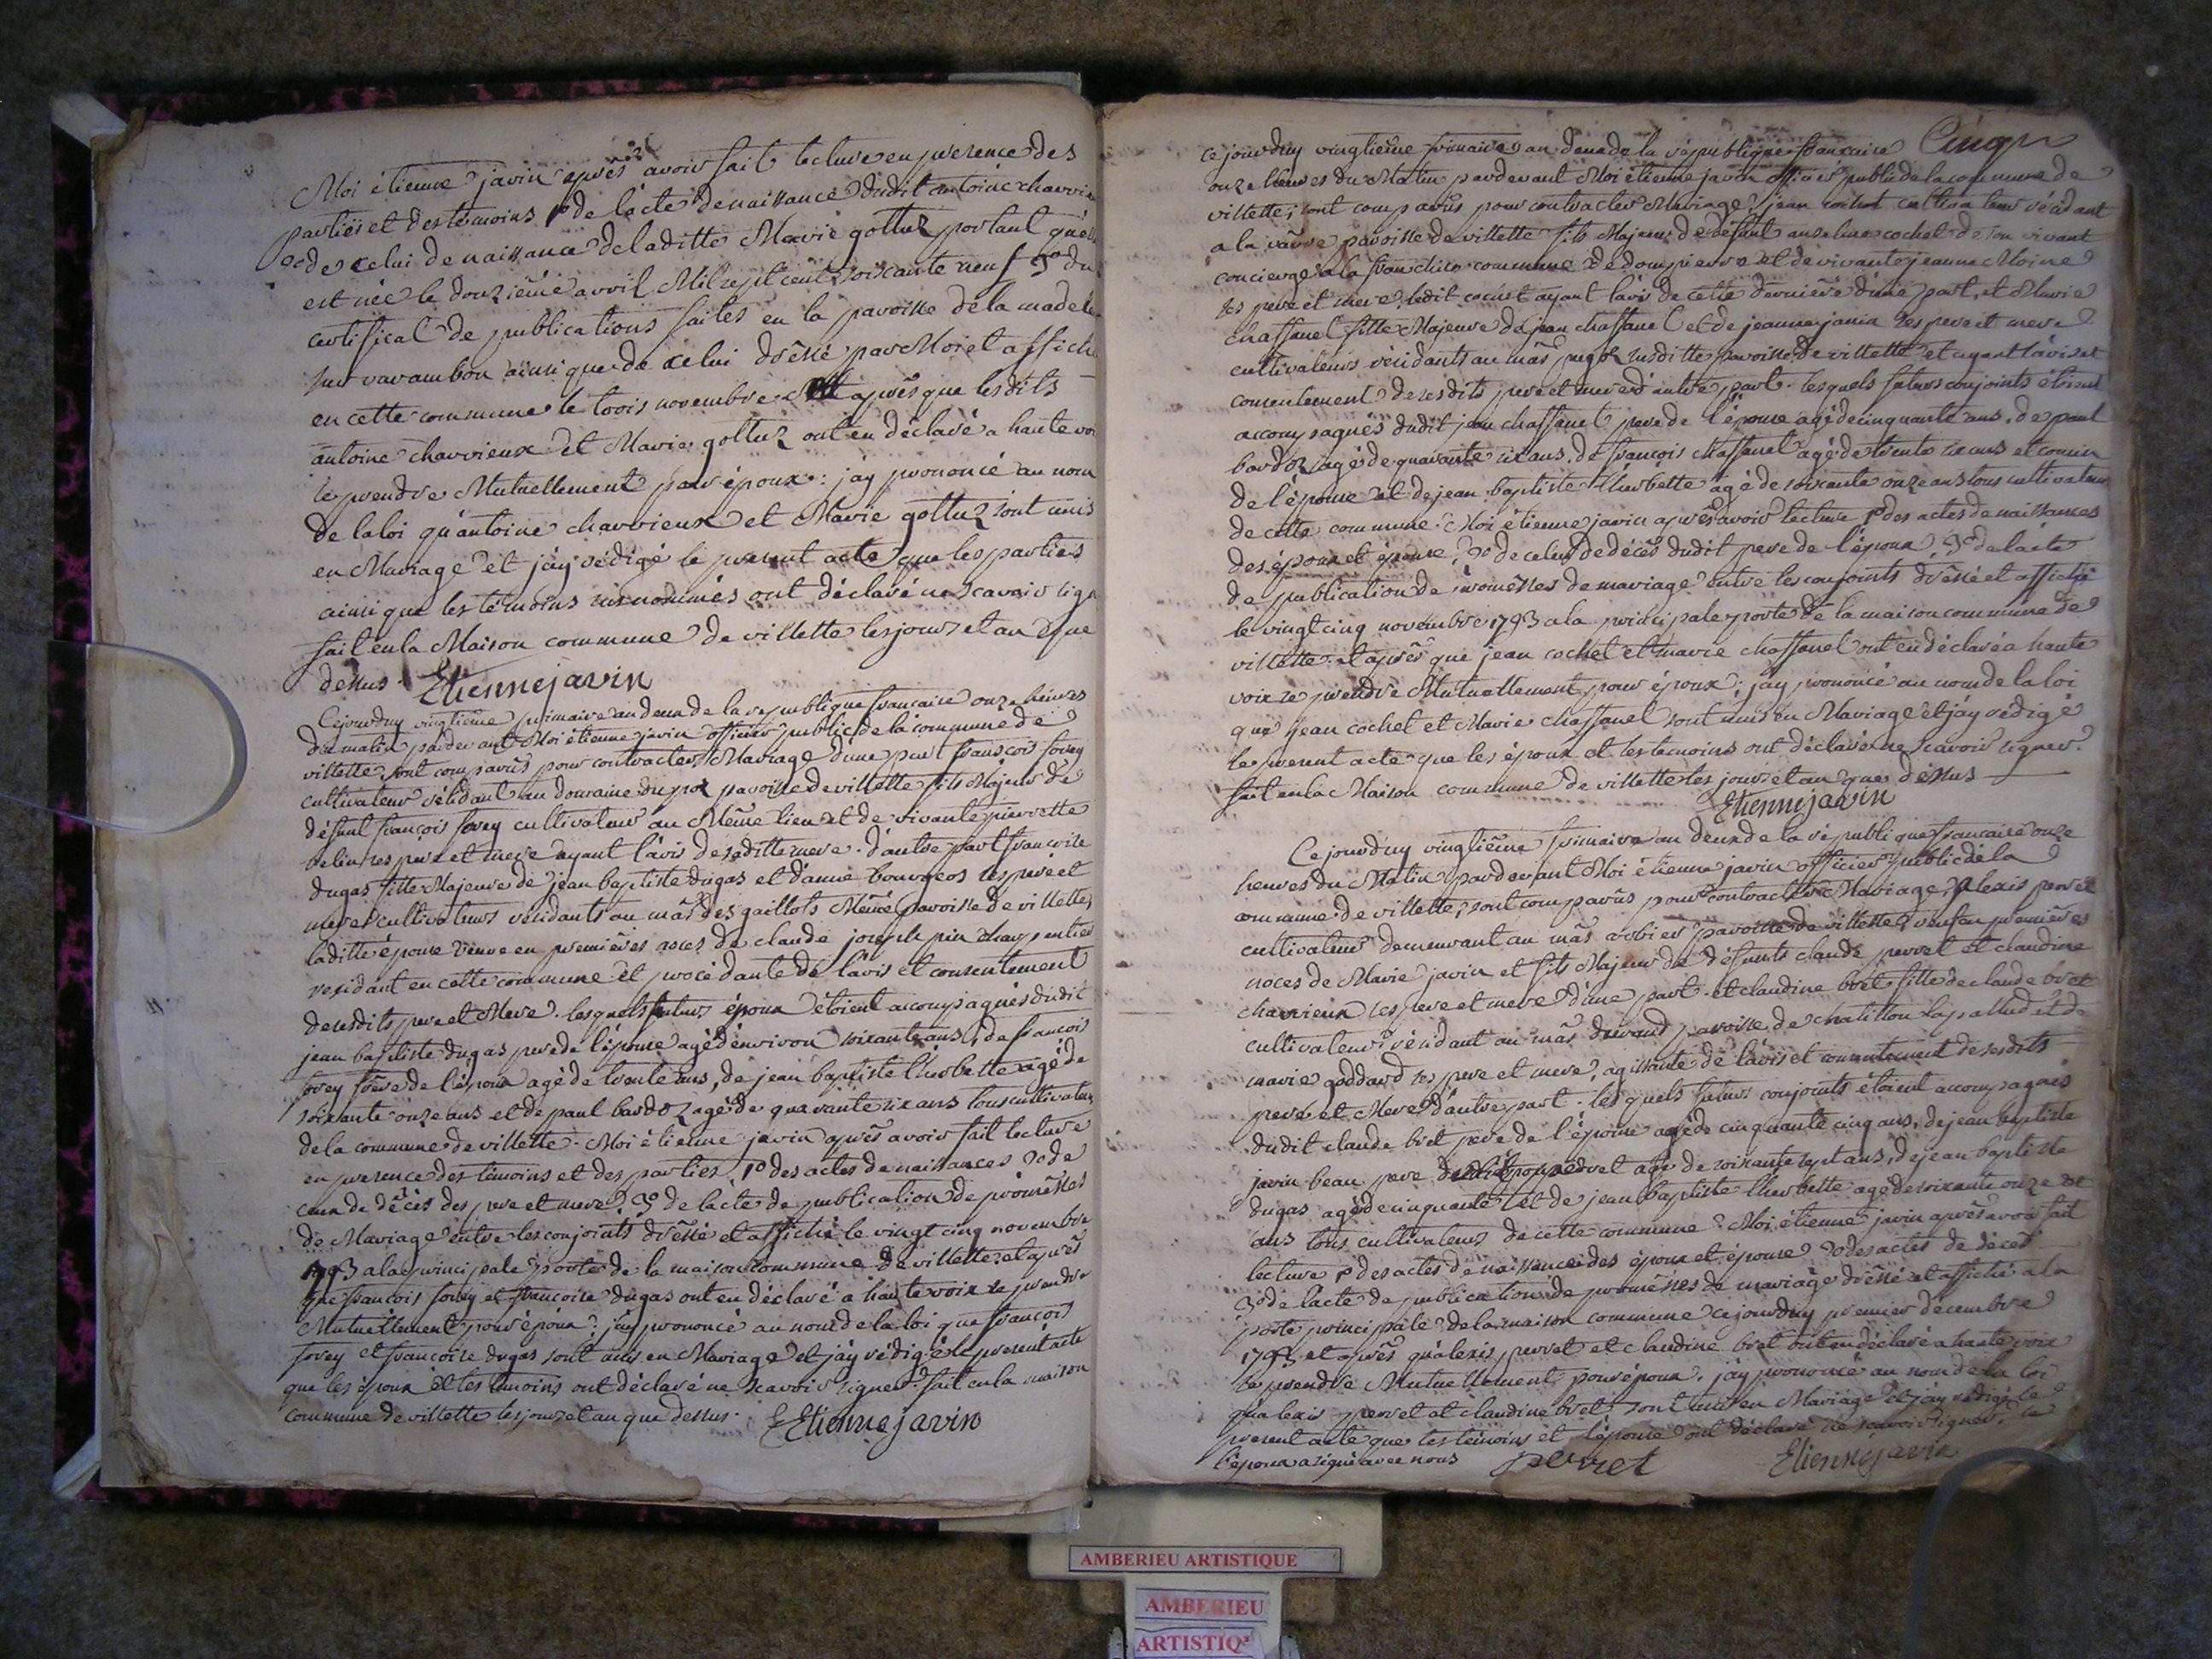 Moi étienne javin après avoir fait lecture en presence des
parties et des témoins 1º de lacte de naissance dudit antoine charvieu
2º de celui de naissance de laditte Marie gottuz portant quelle
est née le douzième avril Mil sept cent soixante neuf 3º du
certificat de publications faites en la paroisse de la madele
sur varambon ainsi que de celui drèssé par Moi et affiché
en cette commune le trois novembre après que lesdits
antoine charvieux et Marie gottuz ont eu déclaré a haute voi
se prendre Mutuellement pour époux: jáy prononcé au nom
de la loi qu'antoine charvieux et Marie gottuz sont unis
en Mariage et jáy rédigé le present acte que les parties
ainsi que les témoins susnommés ont déclaré ne scavoir sign
fait en la Maison commune de villette les jour et an que
dessus. Etienne javin
Cejourduy vingtième frimaire an deux de la republique francaise onze heures
du matin pardevant Moi étienne javin officier public de la commune de
villette, sont comparus pour contracter Mariage d'une part francois forey
cultivateur résidant au domaine du pol paroisse de villette fils Majeur de
défunt françois forey cultivateur au Même lieu et de vivante pierrette
belin ses pere et mere ayant l'avis de saditte mere. d'autre part francoise
dugas fille Majeure de jean baptiste dugas et d'anne bourgeos ses pere et
mere cultivateurs résidants au mâs des gaillots Même paroisse de villette,
laditte épouse veuve en premières noces de claude joseph pin charpentier
residant en cette commune et procédante de l'avis et consentement
de sesdits pere et Mere. lesquels futurs époux étoient accompagnés dudit
jean baptiste dugas pere de l'épouse agé d'environ soixante ans, de francois
forey frère de l'époux agé de trente ans, de jean baptiste lherbette agé de
soixante onze ans et de paul bardoz agé de quarante six ans tous cultivateurs
de la commune de villette. Moi étienne javin après avoir fait lecture
en presence des témoins et des parties, 1º des actes de naissances 2º de
ceux de décès des pere et mere, 3º de lacte de publication de promêsses
de Mariage entre les conjoints drèssé et affiché le vingt cinq novembre
1793 a la principale porte de la maison commune de villette. et après
que francois forey et francoise dugas ont eu déclaré a haute voix se prendre
Mutuellement pour époux; jáy prononcé au nom de la loi que francois
forey et francoise dugas sont unis en Mariage et jáy rédigé le present acte
que les époux et les témoins ont déclaré ne scavoir signer. fait en la maison
commune de villette les jour et an que dessus. Etienne javin
Cinq
cejourduy vingtième frimaire an deux de la république francaise
onze heures du Matin pardevant Moi étienne javin officier public de la commune de
villette; sont comparus pour contracter Mariage, jean cochet cultivateur résidant
a la paroisse de villette fils Majeur de défunt anselme cochet de son vivant
concierge a la franchise commune de dompierre et de vivante jeanne Moine
ses pere et mere ledit cochet ayant l'avis de cette dernière d'une part, et Marie
chaffanel fille Majeure de jean chaffanel et de jeanne janin ses pere et mere
cultivateurs résidants au mâs susditte paroisse de villette et ayant l'avis et
consentement de sesdits pere et mere d'autre part. lesquels futurs conjoints étoient
accompagnés dudit jean chaffanel pere de l'épouse agé de cinquante ans, de paul
bardoz agé de quarante six ans, de francois chaffanel agé de trente six ans et cousin
de l'épouse et de jean baptiste lherbette agé de soixante onze ans tous cultivateurs
de cette commune. Moi étienne javin après avoir lecture 1º des actes de naissances
des époux et épouse, 2º de celui de décès dudit pere de l'époux, 3º de lacte
de publication de promêsses de mariage entre les conjoints drèssé et affiché
le vingt cinq novembre 1793 a la principale porte de la maison commune de
villette. et après que jean cochet et marie chaffanel ont eu déclaré a haute
voix se prendre Mutuellement pour époux; jáy prononcé au nom de la loi
que jean cochet et Marie chaffanel sont unis en Mariage et jáy rédigé
le present acte que les époux et les temoins ont déclaré ne scavoir signer.
fait en la Maison commune de villette les jour et an que dessus
Etienne javin
Cejourduy vingtième frimaire an deux de la république francaise onze
heures du Matin pardevant Moi étienne javin officier public de la
commune de villette, sont comparus pour contracter Mariage, alexis perret
cultivateur demeurant au mâs arbier paroisse de villette veuf en premières
noces de Marie javin et fils Majeur de défunts claude perret et claudine
charvieux ses pere et mere d'une part. et claudine bret fille de claude bret
cultivateur résidant au mâs durand paroisse de chatillon la pallud et de
marie goddard ses pere et mere, agissante de l'avis et consentement de sesdits
pere et Mere d'autre part. lesquels futurs conjoints étoient accompagnés
dudit claude bret pere de l'épouse agé de cinquante cinq ans, de jean baptiste
javin beau pere dudit perret agé de soixante sept ans, de jean baptiste
dugas agé de cinquante et de jean baptiste lherbette agé de soixante onze
ans tous cultivateurs de cette commune. Moi étienne javin après avoir fait
lecture 1º des actes de naissance des époux et épouse 2º des actes de décès
3º de lacte de publication de promêsses de mariage drèssé et affiché a la
porte principale de la maison commune cejourduy premier décembre
1793 et après qu'alexis perret et claudine bret ont eu déclaré a haute voix
se prendre Mutuellement pour époux. jáy prononcé au nom de la loi
qu'alexis perret et claudine bret sont unis en Mariage et jáy rédigé le
present acte que les témoins et l'épouse ont déclaré ne scavoir signer,
l'époux a signé avec nous perret Etienne javin
AMBERIEU ARTISTIQUE
AMBERIEU
ARTISTIQ